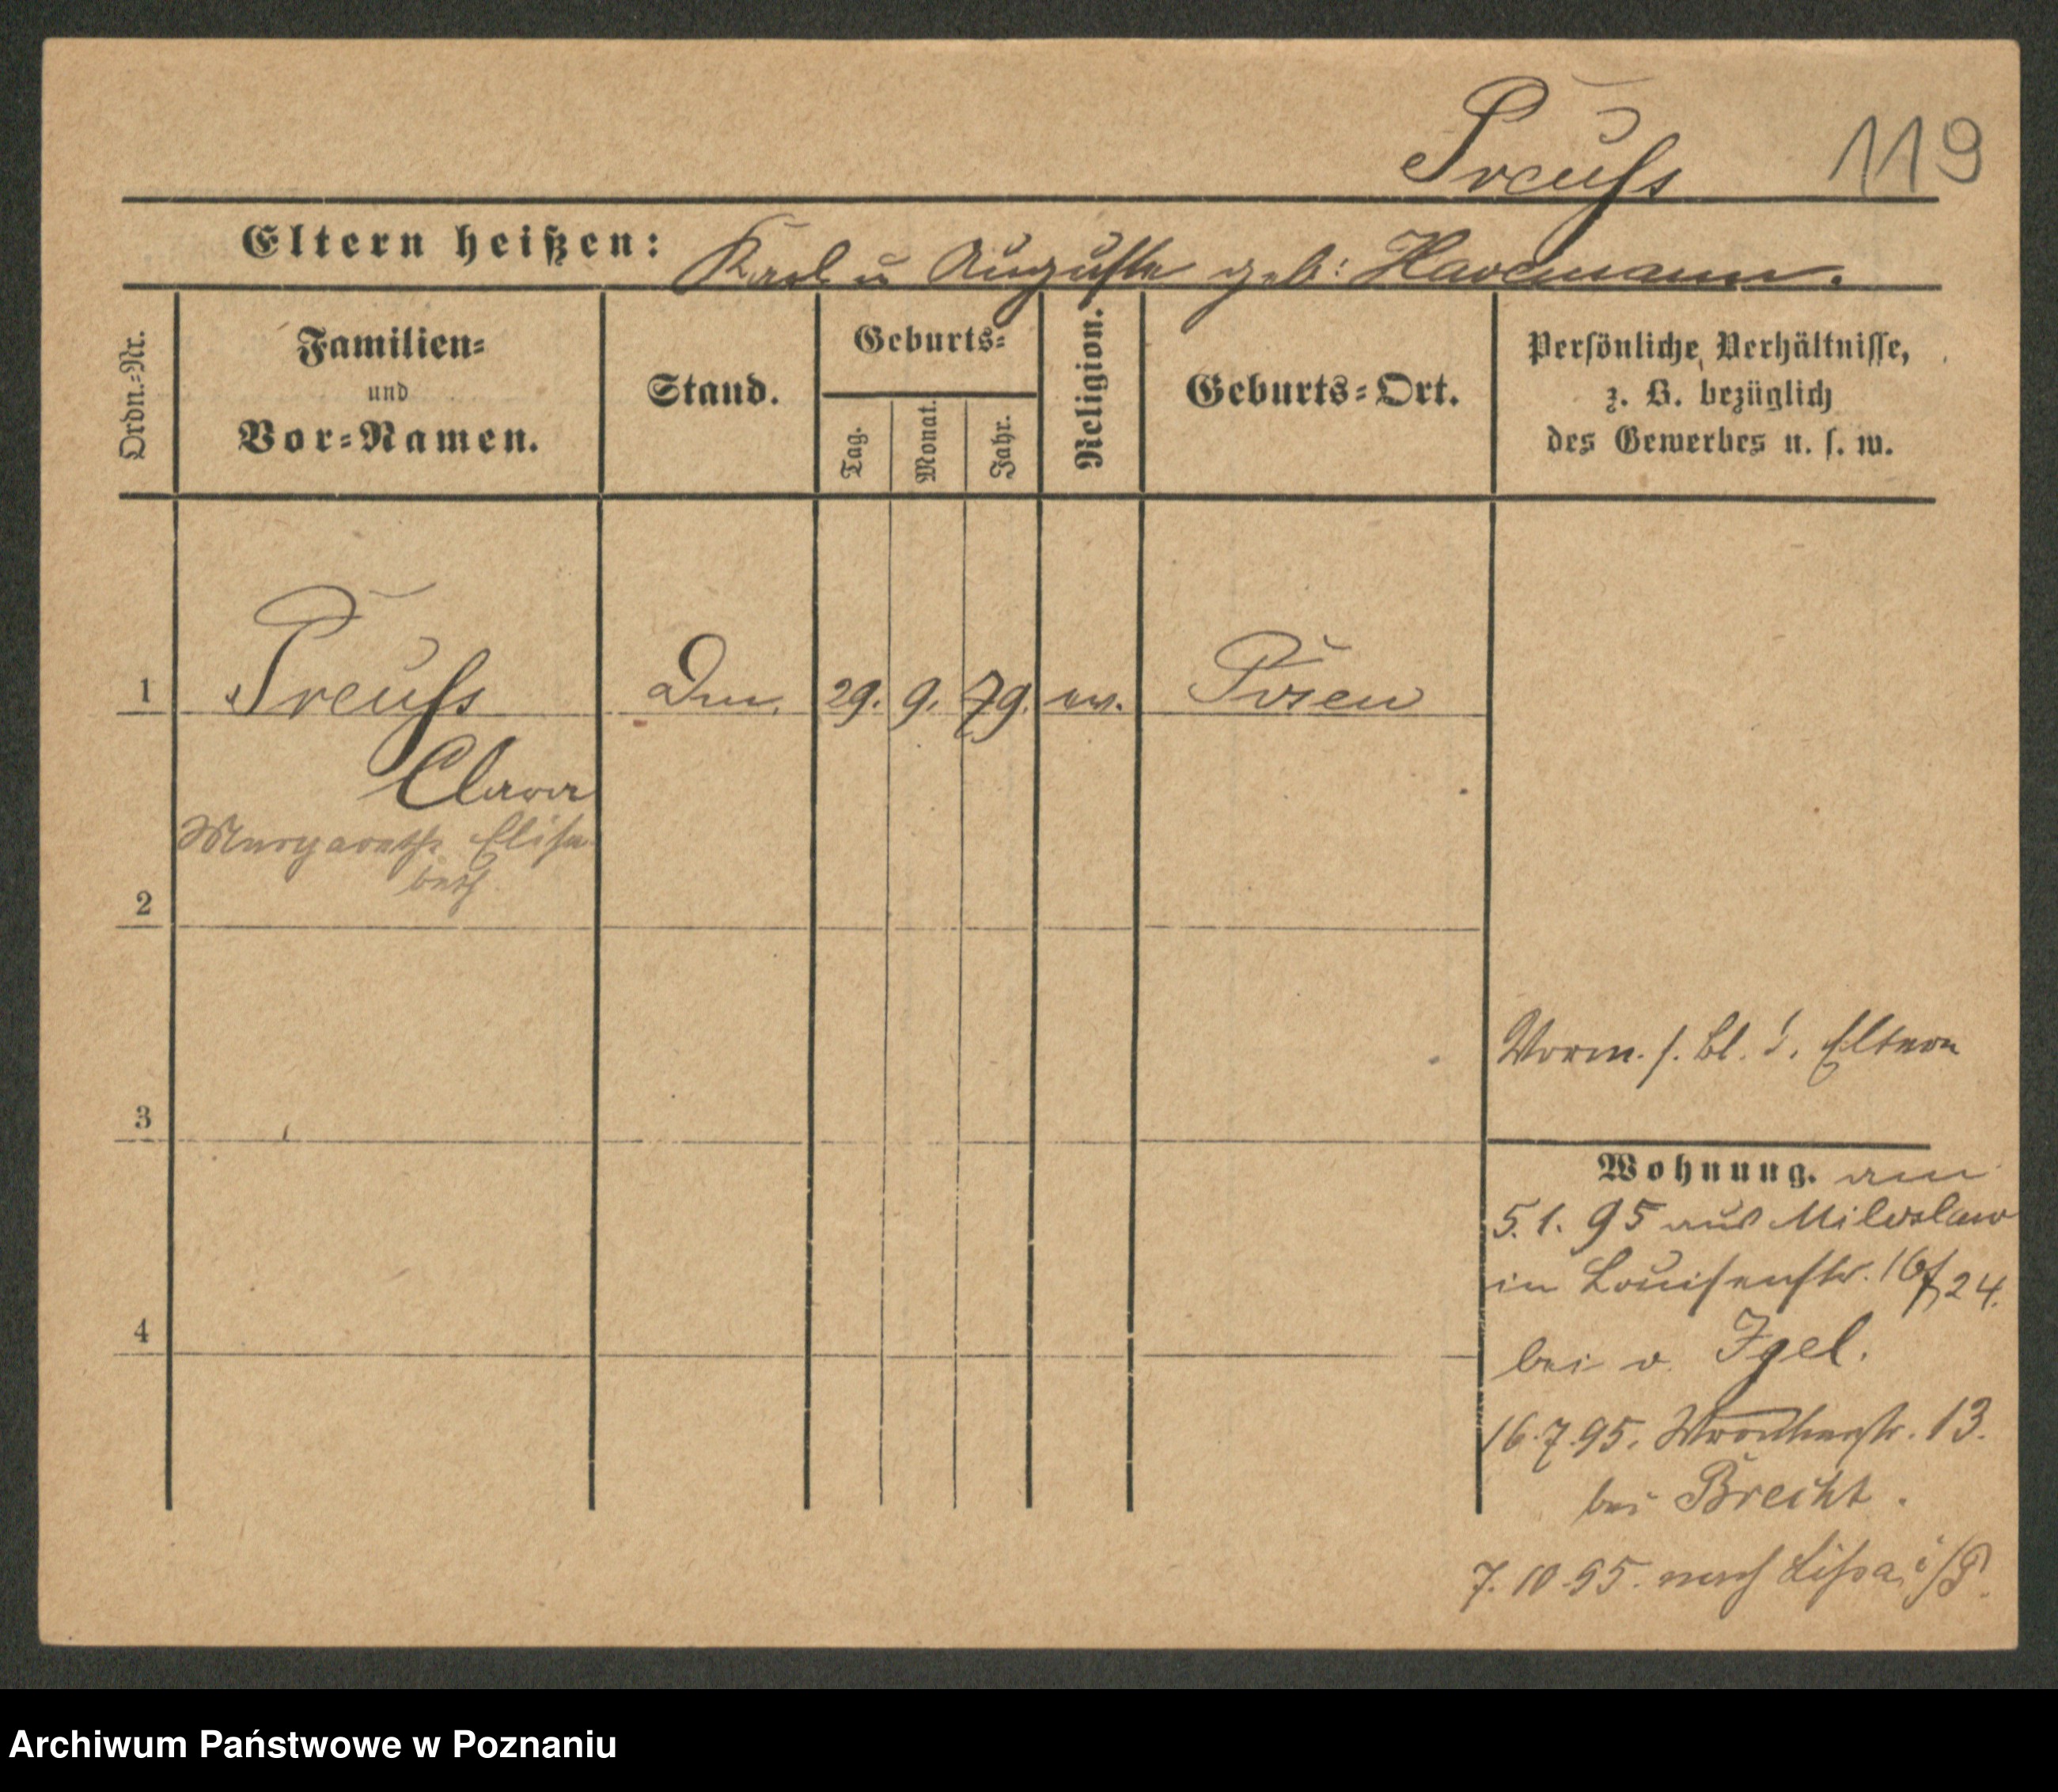 Preuß 119
Eltern heißen: Karl u Auguste geb: Havemann.
Ordn.-Nr.
Familien-
und
Vor-Namen.
Stand.
Geburts-
Tag.
Monat.
Jahr.
Religion.
Geburts-Ort.
Persönliche Verhältnisse,
z. B. bezüglich
des Gewerbes u. s. w.
1 Preuß 29. 9. 79. ev. Posen
Clara
Margareth Elisa
beth
2
3
4
Vorm. s. bl. d. Eltern
Wohnung. am
5. 1. 95 aus Miloslaw
in Louisenstr. 24.
bei v. Igel.
16.7.95. 13.
bei Brecht.
7. 10. 95. nach Lissa i/P.